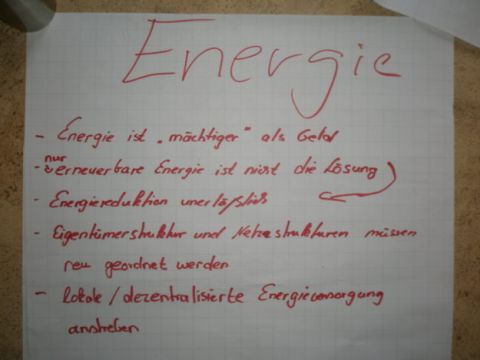 Energie
- Energie ist „mächtiger" als Geld
nur
- erneuerbare Energie ist nicht die Lösung
- Energiereduktion unerläßlich
- Eigentümerstruktur und Netzstrukturen müssen
neu geordnet werden
- lokale / dezentralisierte Energieversorgung
anstreben